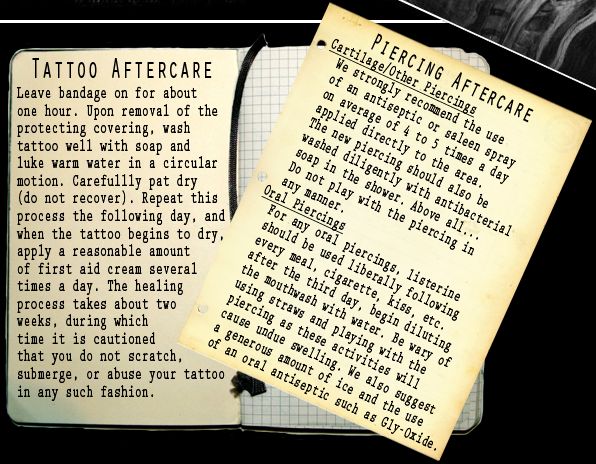 Tattoo Aftercare
Leave bandage on for about
one hour. Upon removal of the
protecting covering, wash
tattoo well with soap and
luke warm water in a circular
motion. Carefullly pat dry
(do not recover). Repeat this
process the following day, and
when the tattoo begins to dry,
apply a reasonable amount
of first aid cream several
times a day. The healing
process takes about two
weeks, during which
time it is cautioned
that you do not scratch,
submerge, or abuse your tattoo
in any such fashion.
Piercing Aftercare
Cartilage/Other Piercings
We strongly recommend the use
of an antiseptic or saleen spray
on average of 4 to 5 times a day
applied directly to the area.
The new piercing should also be
washed diligently with antibacterial
soap in the shower. Above all...
Do not play with the piercing in
any manner.
Oral Piercings
For any oral piercings, listerine
should be used liberally following
every meal, cigarette, kiss, etc.
after the third day, begin diluting
the mouthwash with water. Be wary of
using straws and playing with the
piercing as these activities will
cause undue swelling. We also suggest
a generous amount of ice and the use
of an oral antiseptic such as Gly-Oxide.